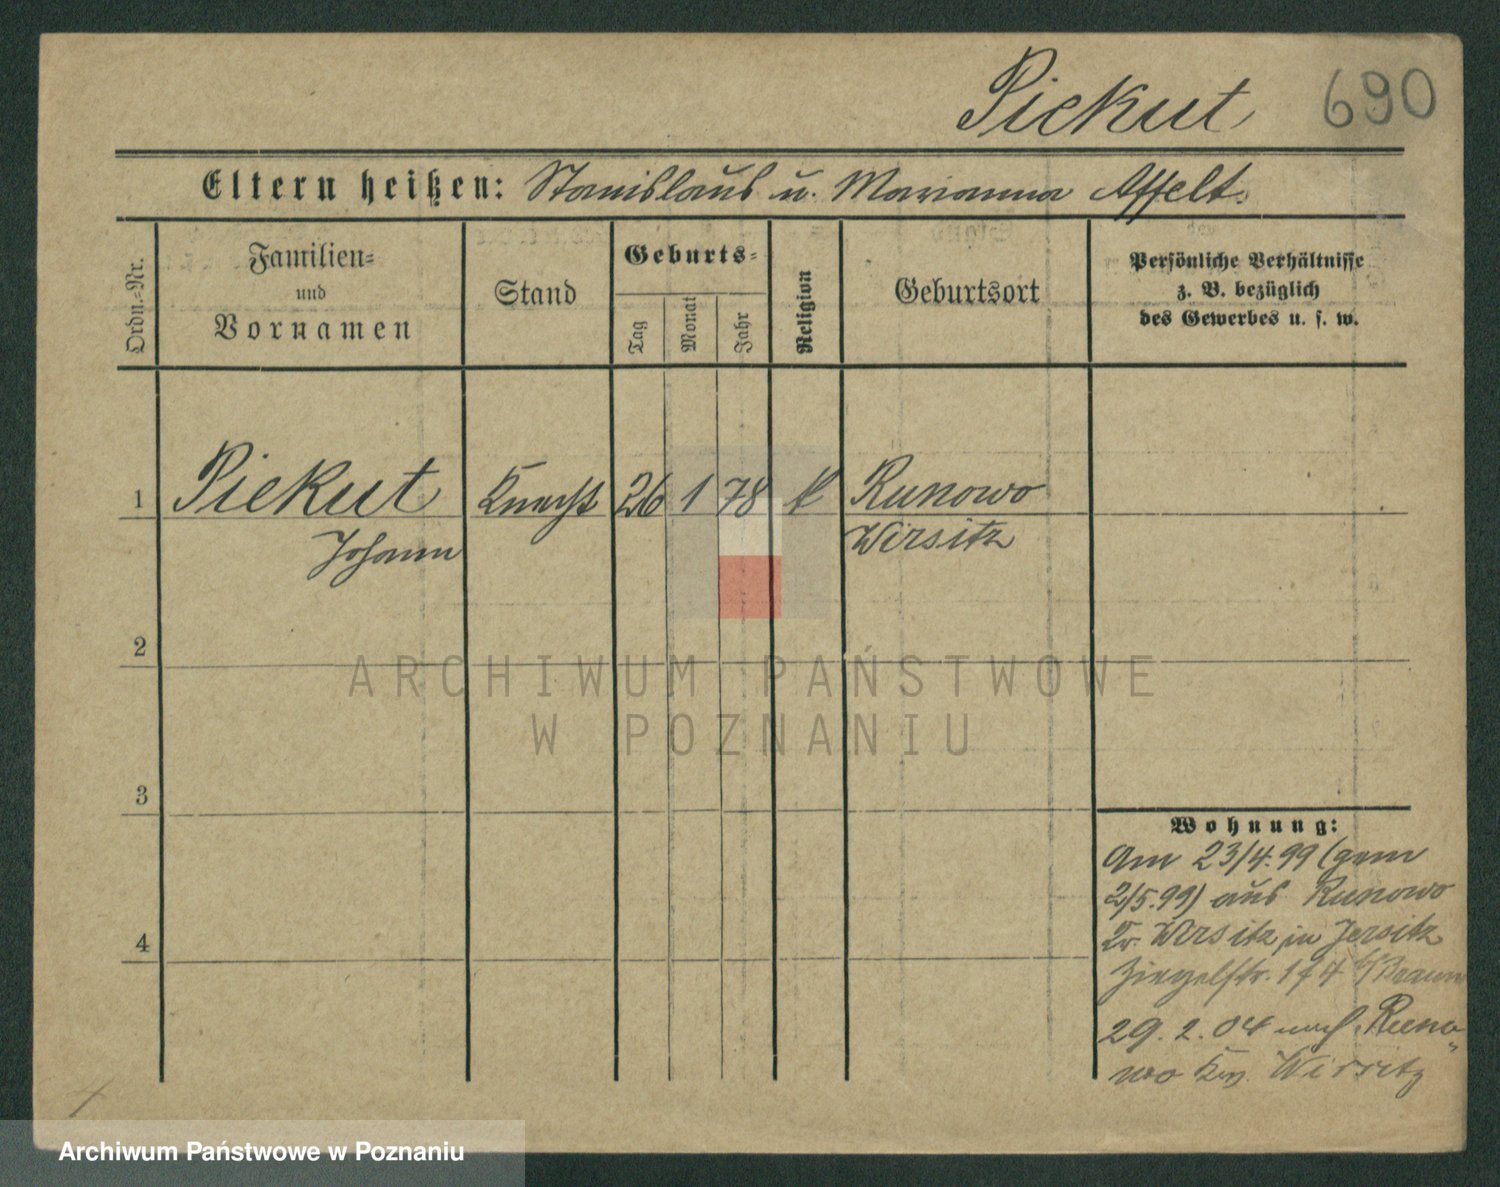 Piekut 690
Eltern heißen: Stanislaus u. Marianna Affelt.
Ordn.-Nr.
Familien-
und
Vornamen
Stand
Geburts-
Tag
Monat
Jahr
Religion
Geburtsort
Persönliche Verhältnisse
z. B. bezüglich
des Gewerbes u. s. w.
1 Piekut Knecht 26 1 78 k Runowo
Johann Wirsitz
2
3
4
Wohnung:
Am 23/4.99 (gem
2/5.99) aus Runowo
Kr. Wirsitz in Jersitz
Ziegelstr. 1
29.2.04 nach Runo-
wo Kr. Wirsitz
ARCHIWUM PAŃSTWOWE
W POZNANIU
Archiwum Państwowe w Poznaniu